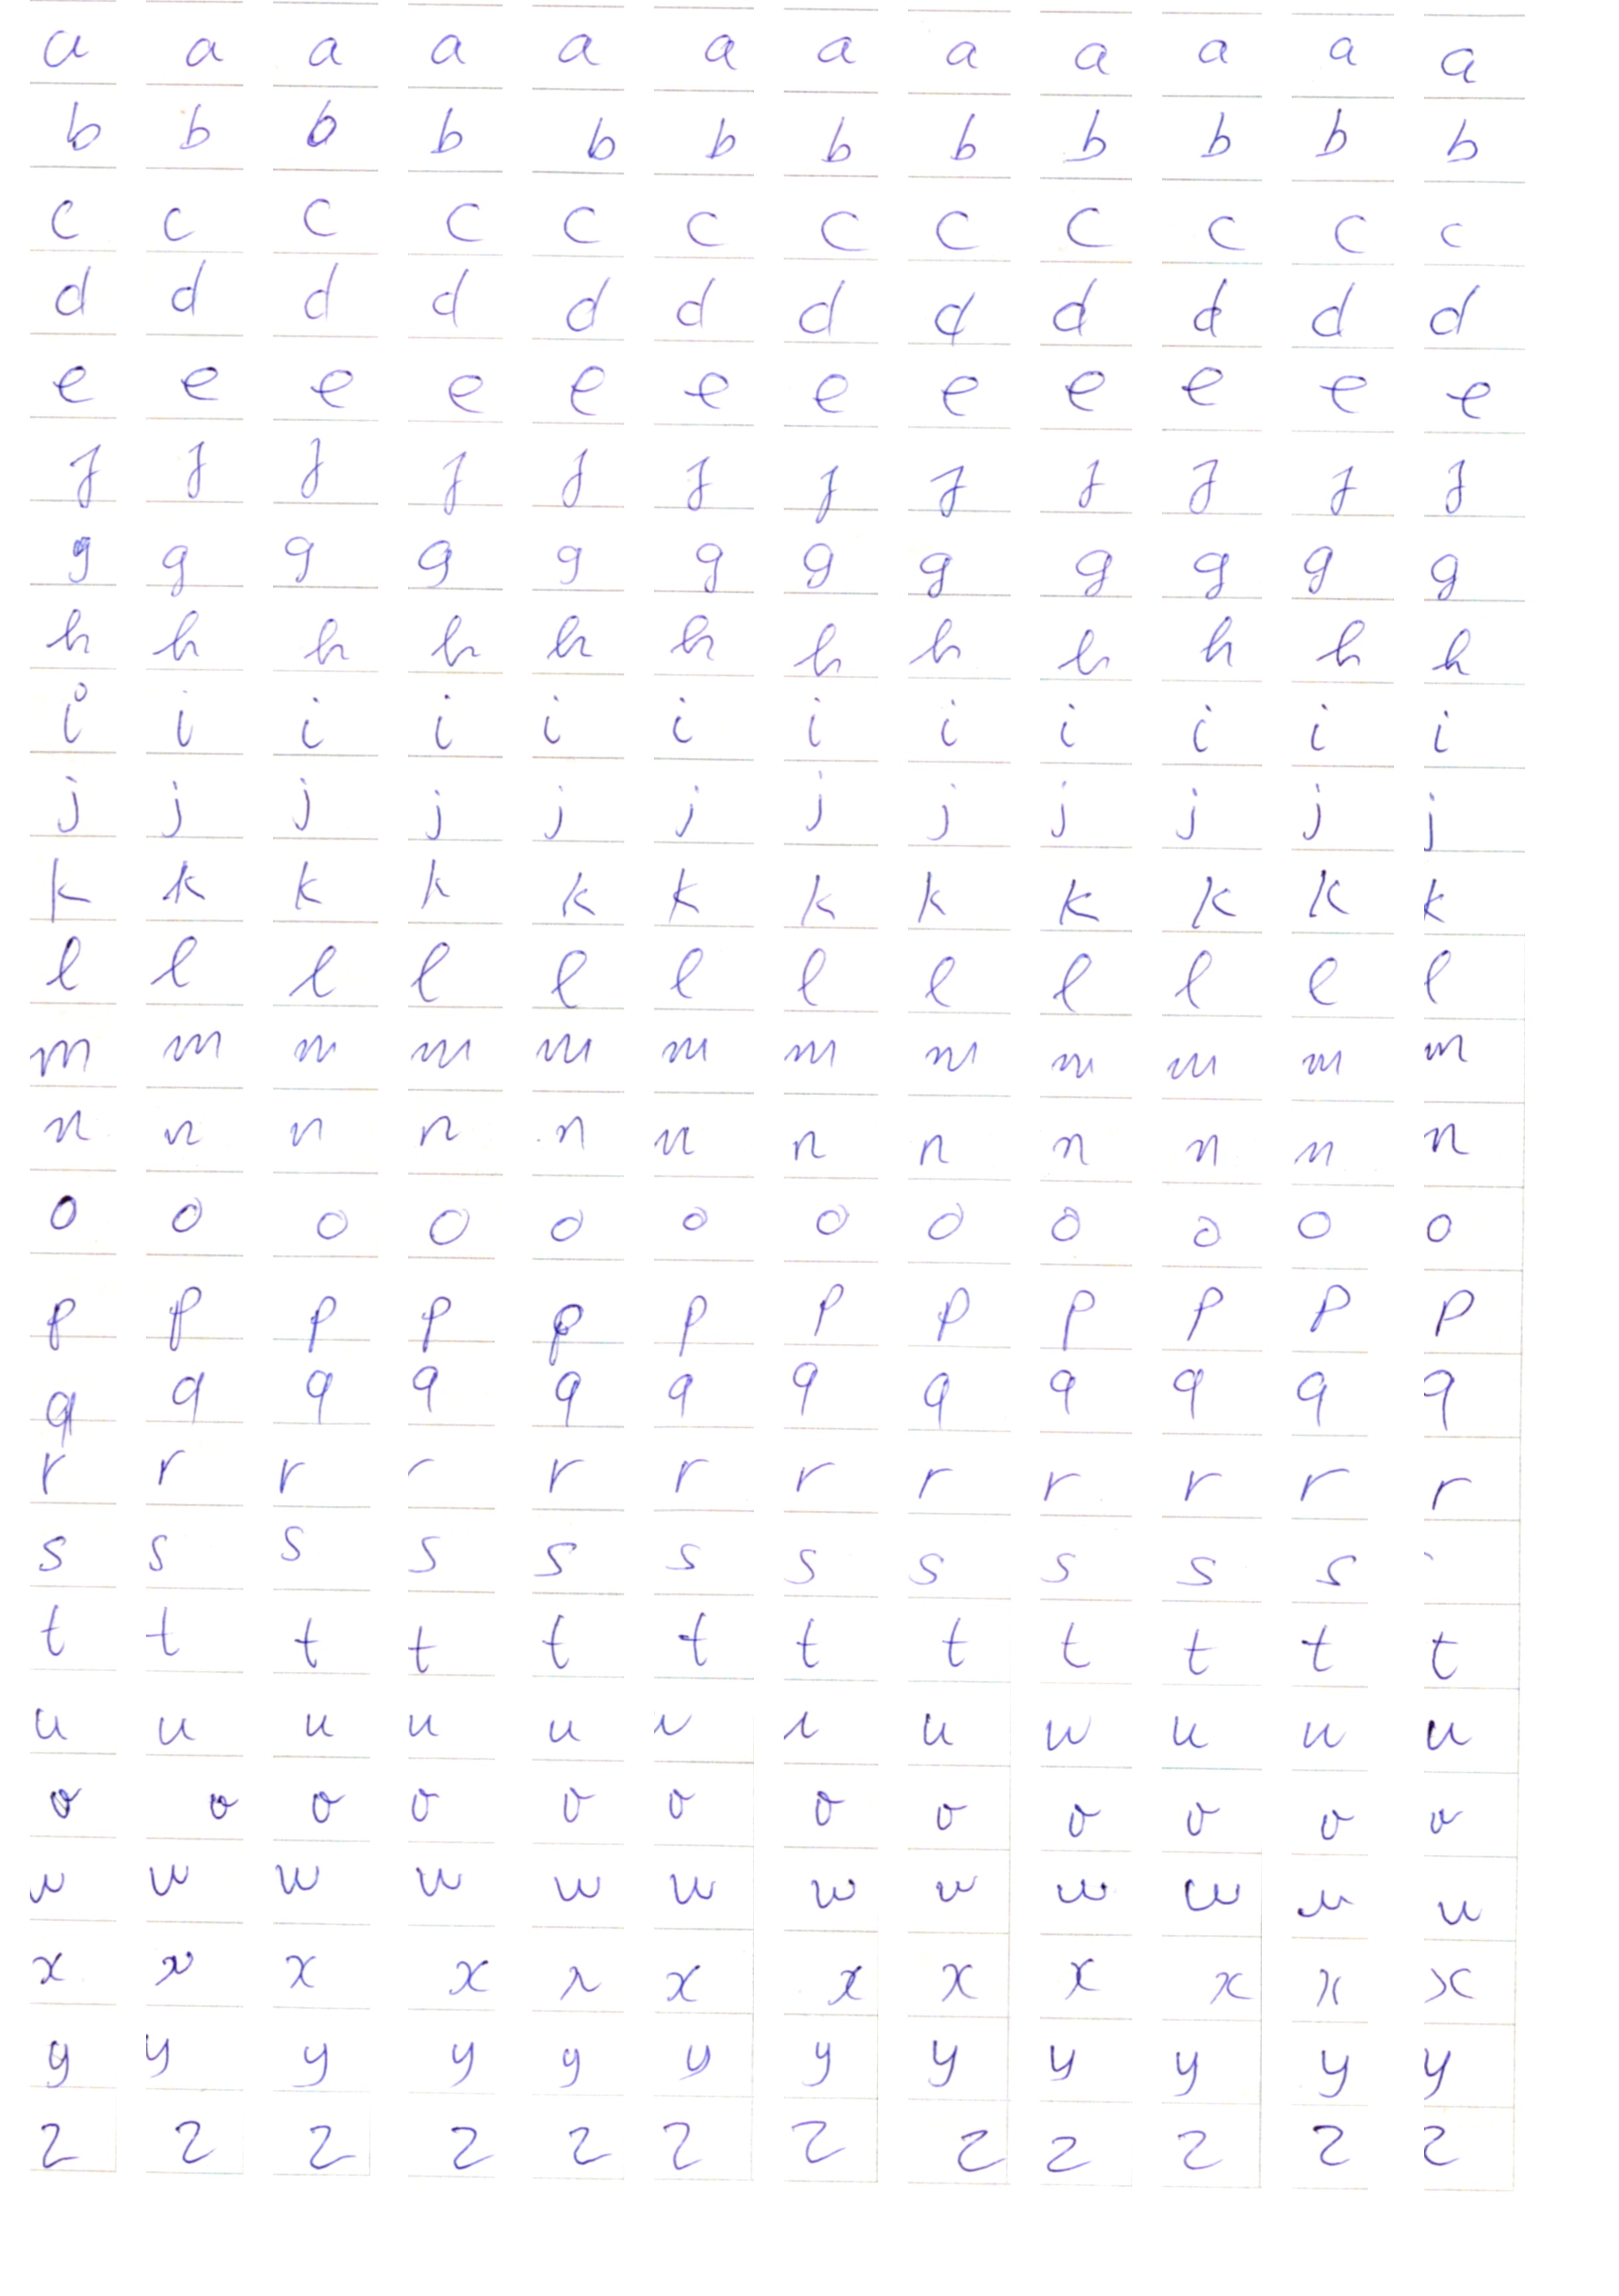 a a a a a a a a a a a a
b b b b b b b b b b b b
c c c c c c c c c c c c
d d d d d d d d d d d d
e e e e e e e e e e e e
f f f f f f f f f f f f
g g g g g g g g g g g g
h h h h h h h h h h h h
i i i i i i i i i i i i
j j j j j j j j j j j j
k k k k k k k k k k k k
l l l l l l l l l l l l
m m m m m m m m m m m m
n n n n n n n n n n n n
o o o o o o o o o o o o
p p p p p p p p p p p p
q q q q q q q q q q q q
r r r r r r r r r r r
s s s s s s s s s s s
t t t t t t t t t t t t
u u u u u u u u u u
v v v v v v v v v v v v
w w w w w w w w w w
x x x x x x x x x x x x
y y y y y y y y y y y y
z z z z z z z z z z z z